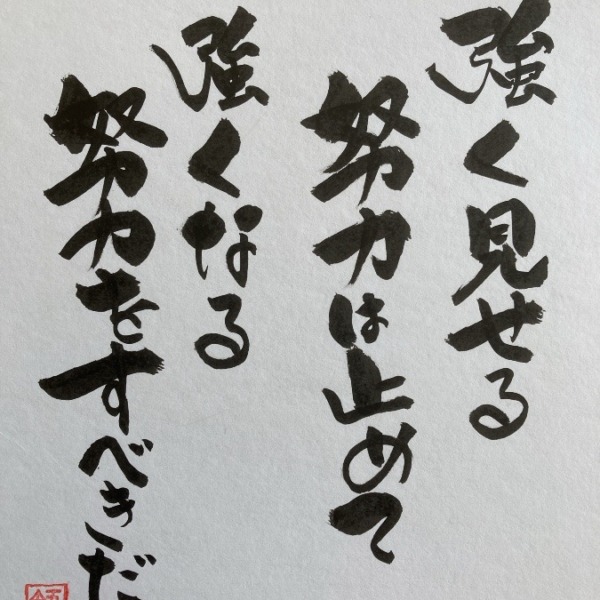 強く見せる
努力は止めて
強くなる
努力をすべきだ